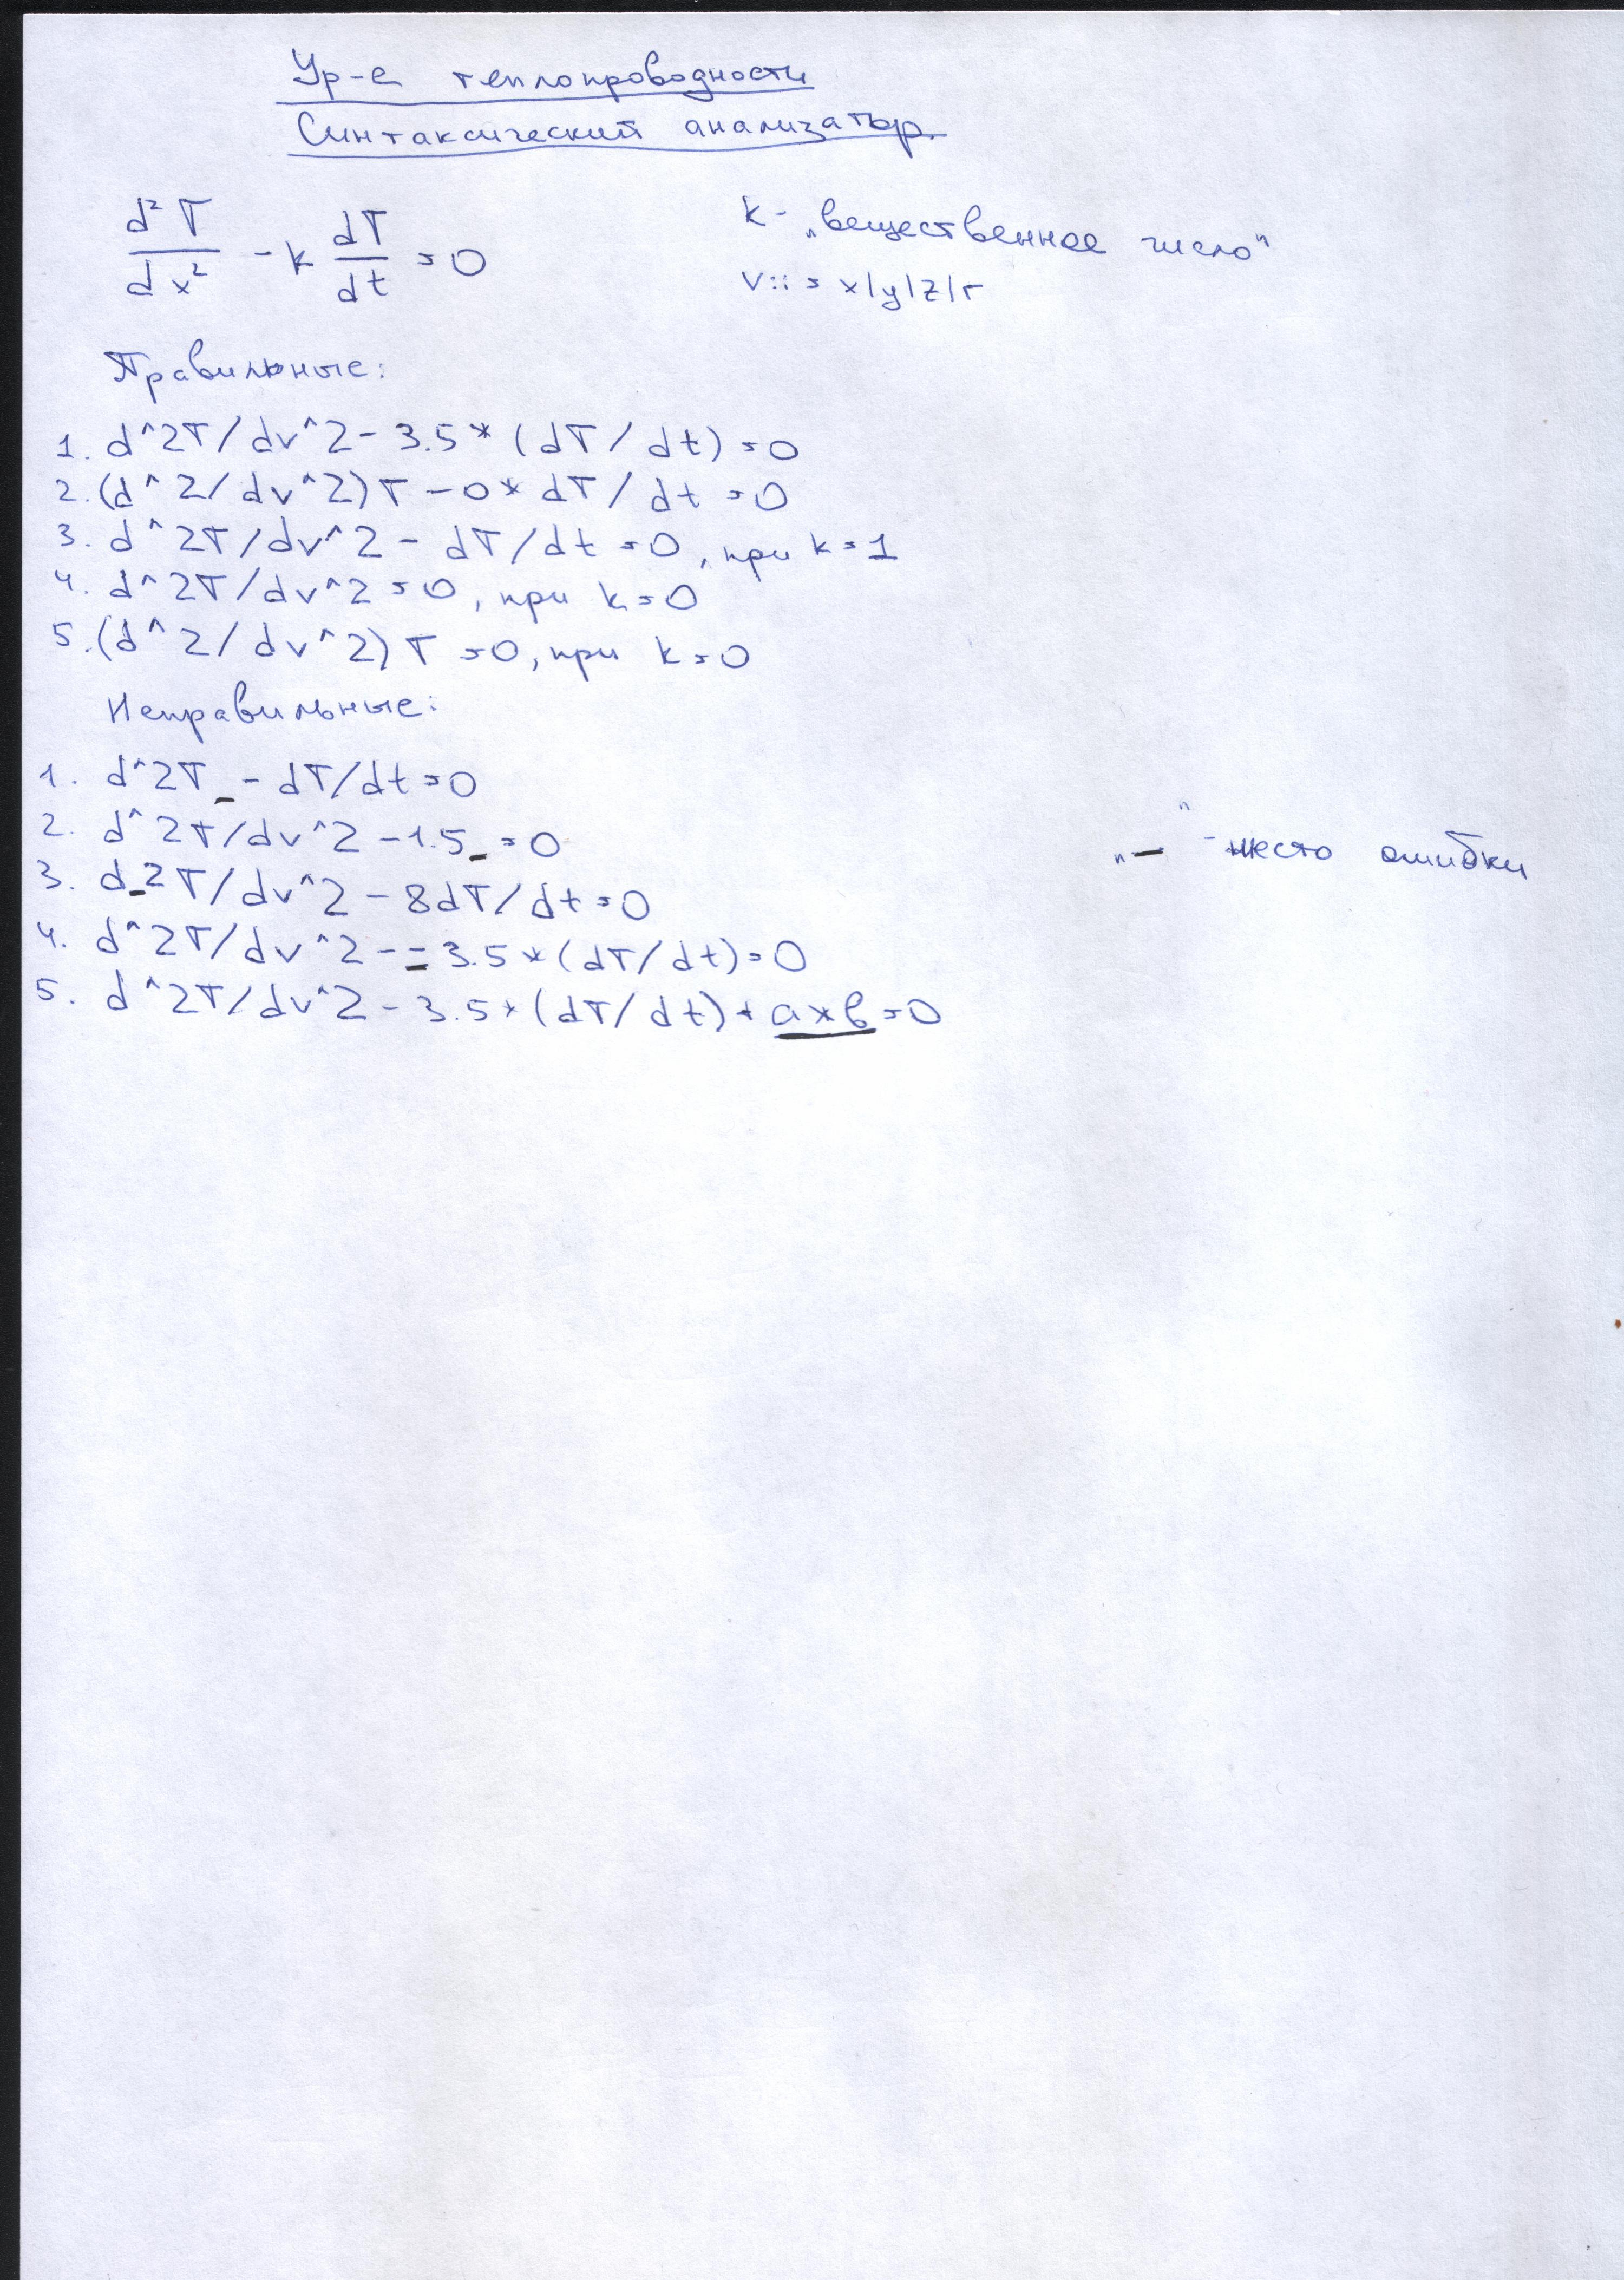 Ур-е теплопроводности
Синтаксический анализатор.
d²T/dx² - k dT/dt = 0
k - „вещественное число"
v::= x|y|z|r
Правильные:
1. d^2T/dv^2-3.5*(dT/dt)=0
2. (d^2/dv^2)T-0*dT/dt=0
3. d^2T/dv^2-dT/dt=0, при k=1
4. d^2T/dv^2=0, при k=0
5. (d^2/dv^2)T=0, при k=0
Неправильные:
1. d^2T_-dT/dt=0
2. d^2T/dv^2-1.5_=0
„_" - место ошибки
3. d_2T/dv^2-8dT/dt=0
4. d^2T/dv^2--3.5*(dT/dt)=0
5. d^2T/dv^2-3.5*(dT/dt)+a*b=0